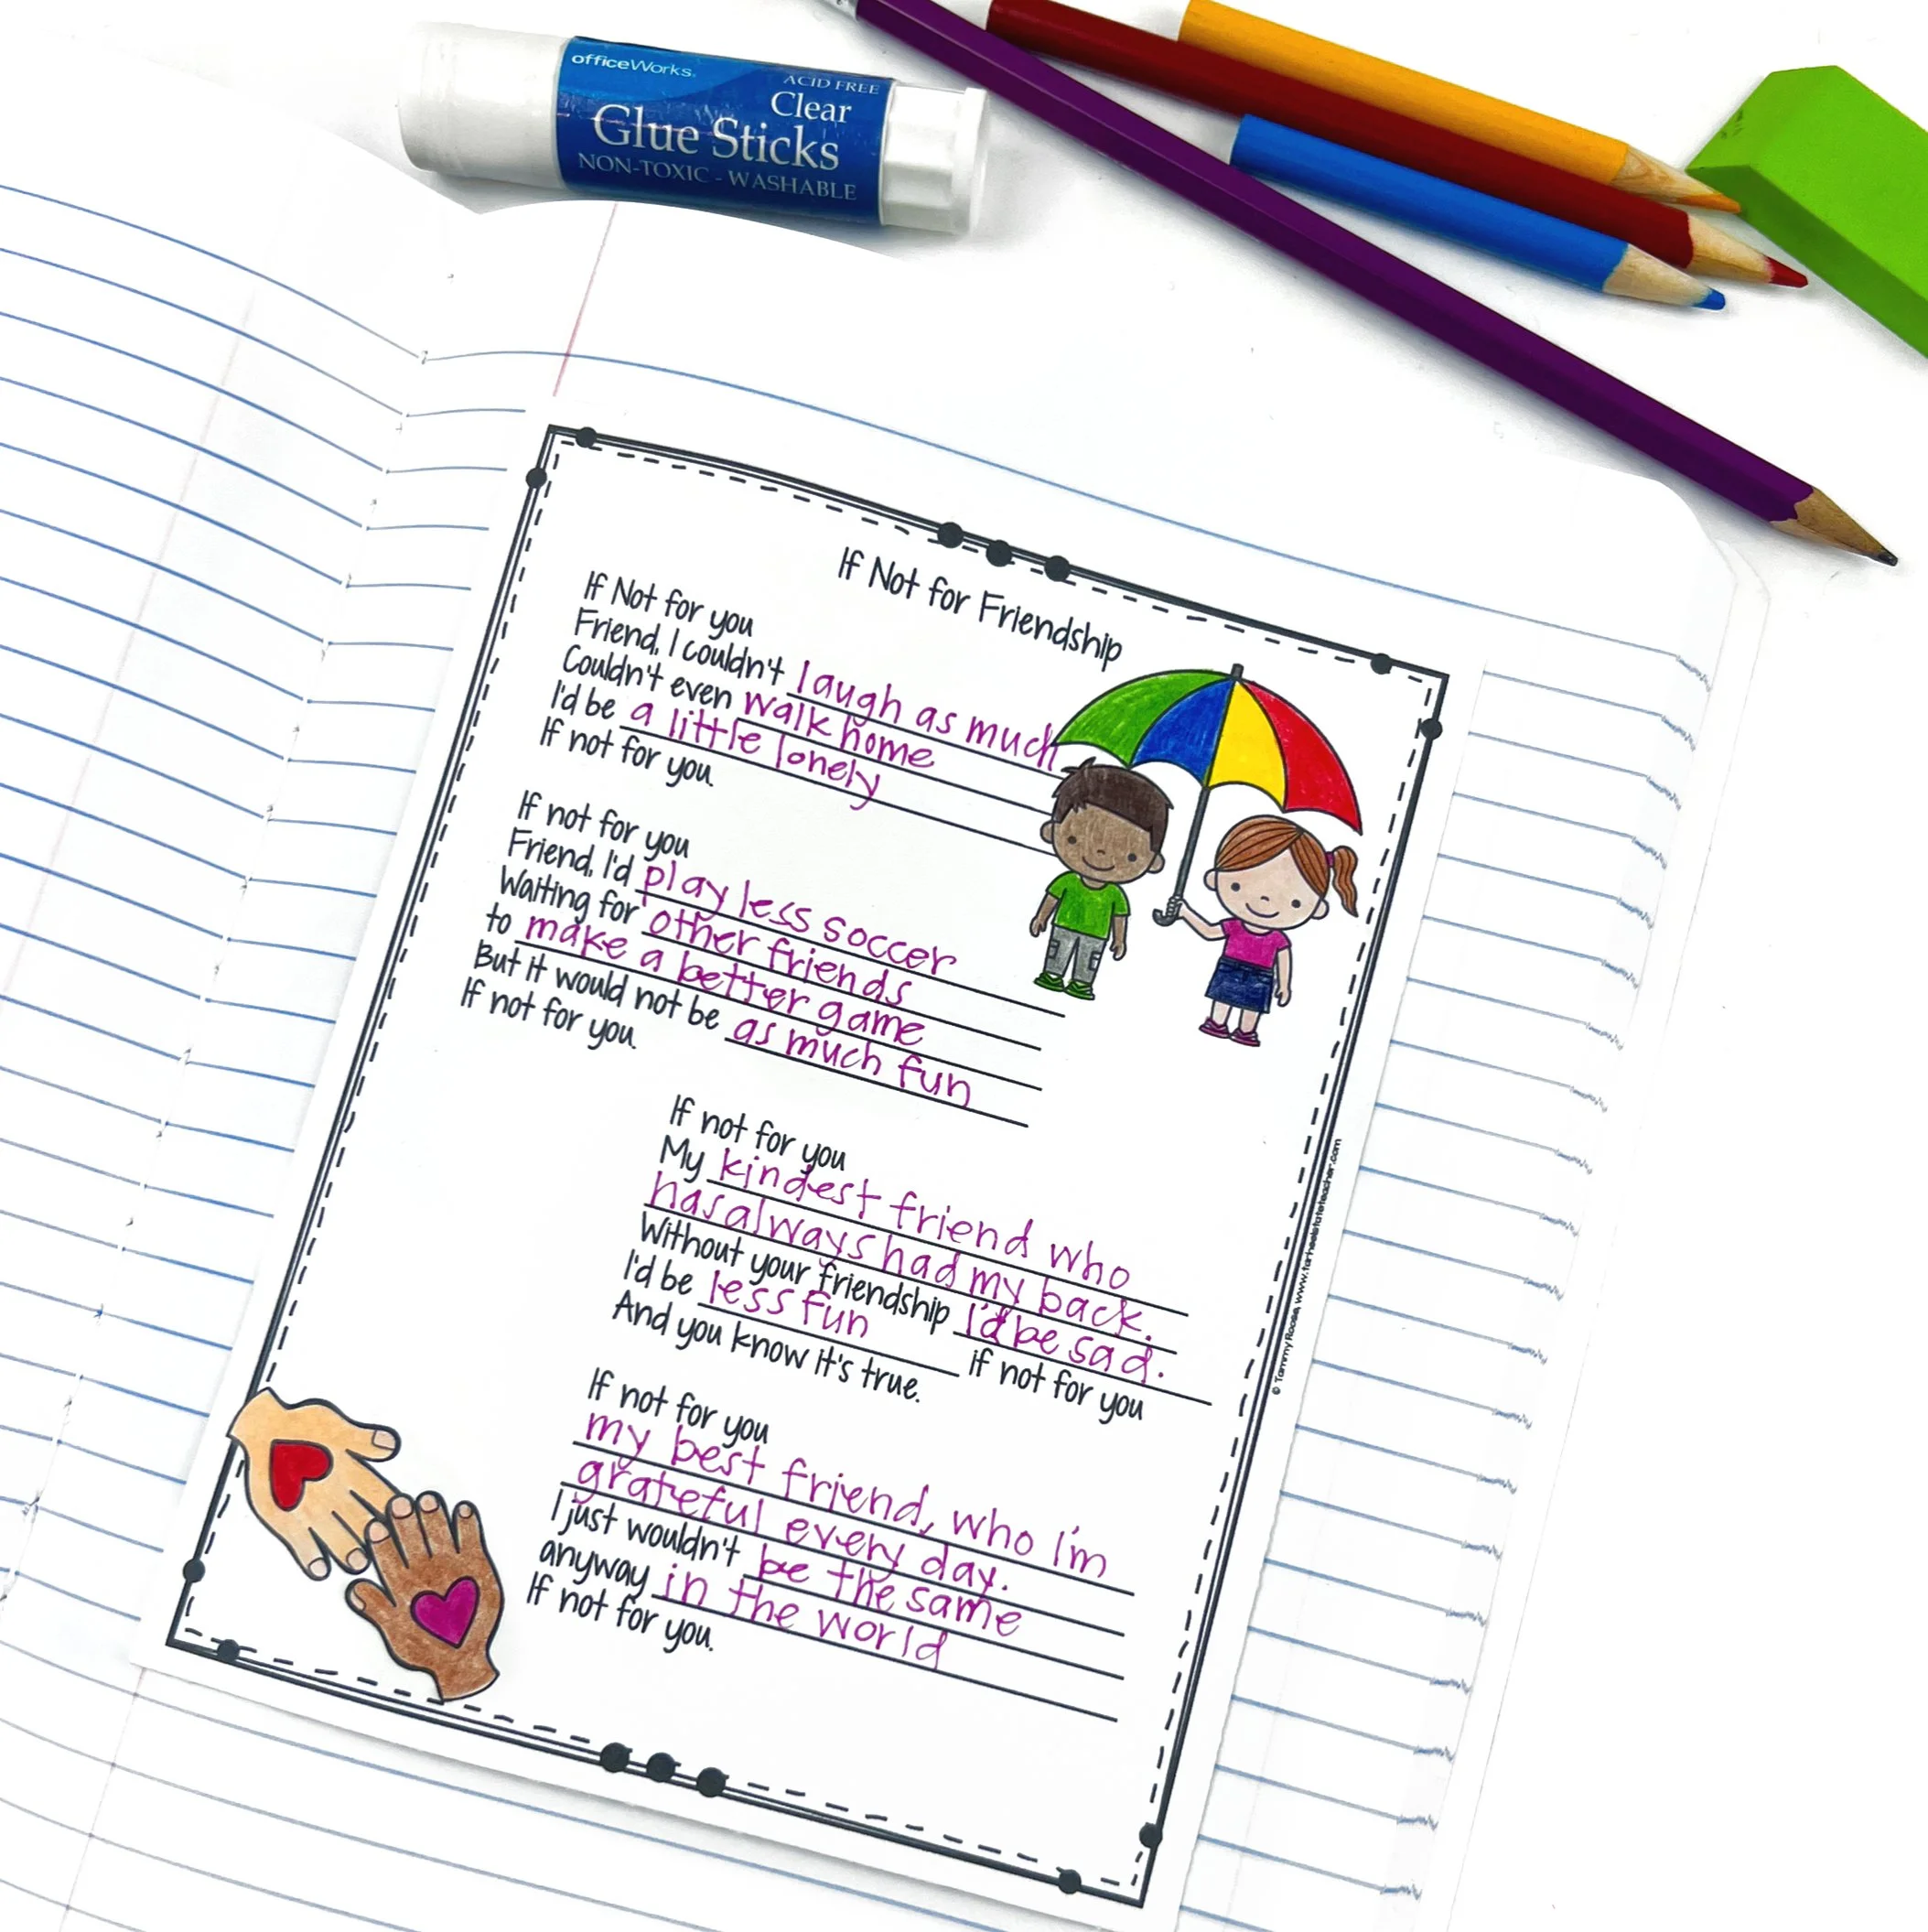 officeWorks
ACID FREE
Clear
Glue Sticks
NON-TOXIC - WASHABLE
If Not for Friendship
If Not for you
Friend, I couldn't laugh as much
Couldn't even walk home
I'd be a little lonely
If not for you.
If not for you
Friend, I'd play less soccer
Waiting for other friends
to make a better game
But it would not be as much fun
If not for you.
If not for you
My kindest friend who
has always had my back.
Without your friendship I'd be sad.
I'd be less fun if not for you
And you know it's true.
If not for you
my best friend, who I'm
grateful every day.
I just wouldn't be the same
anyway in the world
If not for you.
© Tammy Roose, www.tarheelstateteacher.com